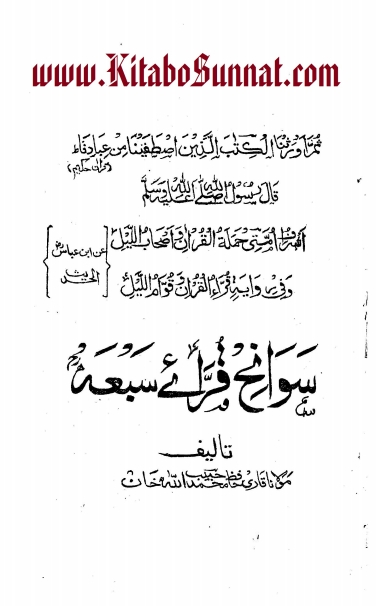 www.KitaboSunnat.com
ثُمَّ اَوْرَثْنَا الْكِتٰبَ الَّذِيْنَ اصْطَفَيْنَا مِنْ عِبَادِنَا
(قرآن حکیم)
قَالَ رَسُوْلُ اللّٰهِ صَلَّى اللّٰهُ عَلَيْهِ وَسَلَّمَ
اَشْرَافُ اُمَّتِيْ حَمَلَةُ الْقُرْاٰنِ وَ اَصْحَابُ اللَّيْلِ
وَفِيْ رِوَايَةِ قُرَّاءُ الْقُرْاٰنِ وَ قُوَّامُ اللَّيْلِ
عن ابن عباس رض
الحدیث
سَوَانِحِ قُرَّائے سَبْعَہ
تالیف
مولانا قاری حافظ حبیب محمد اللہ خان